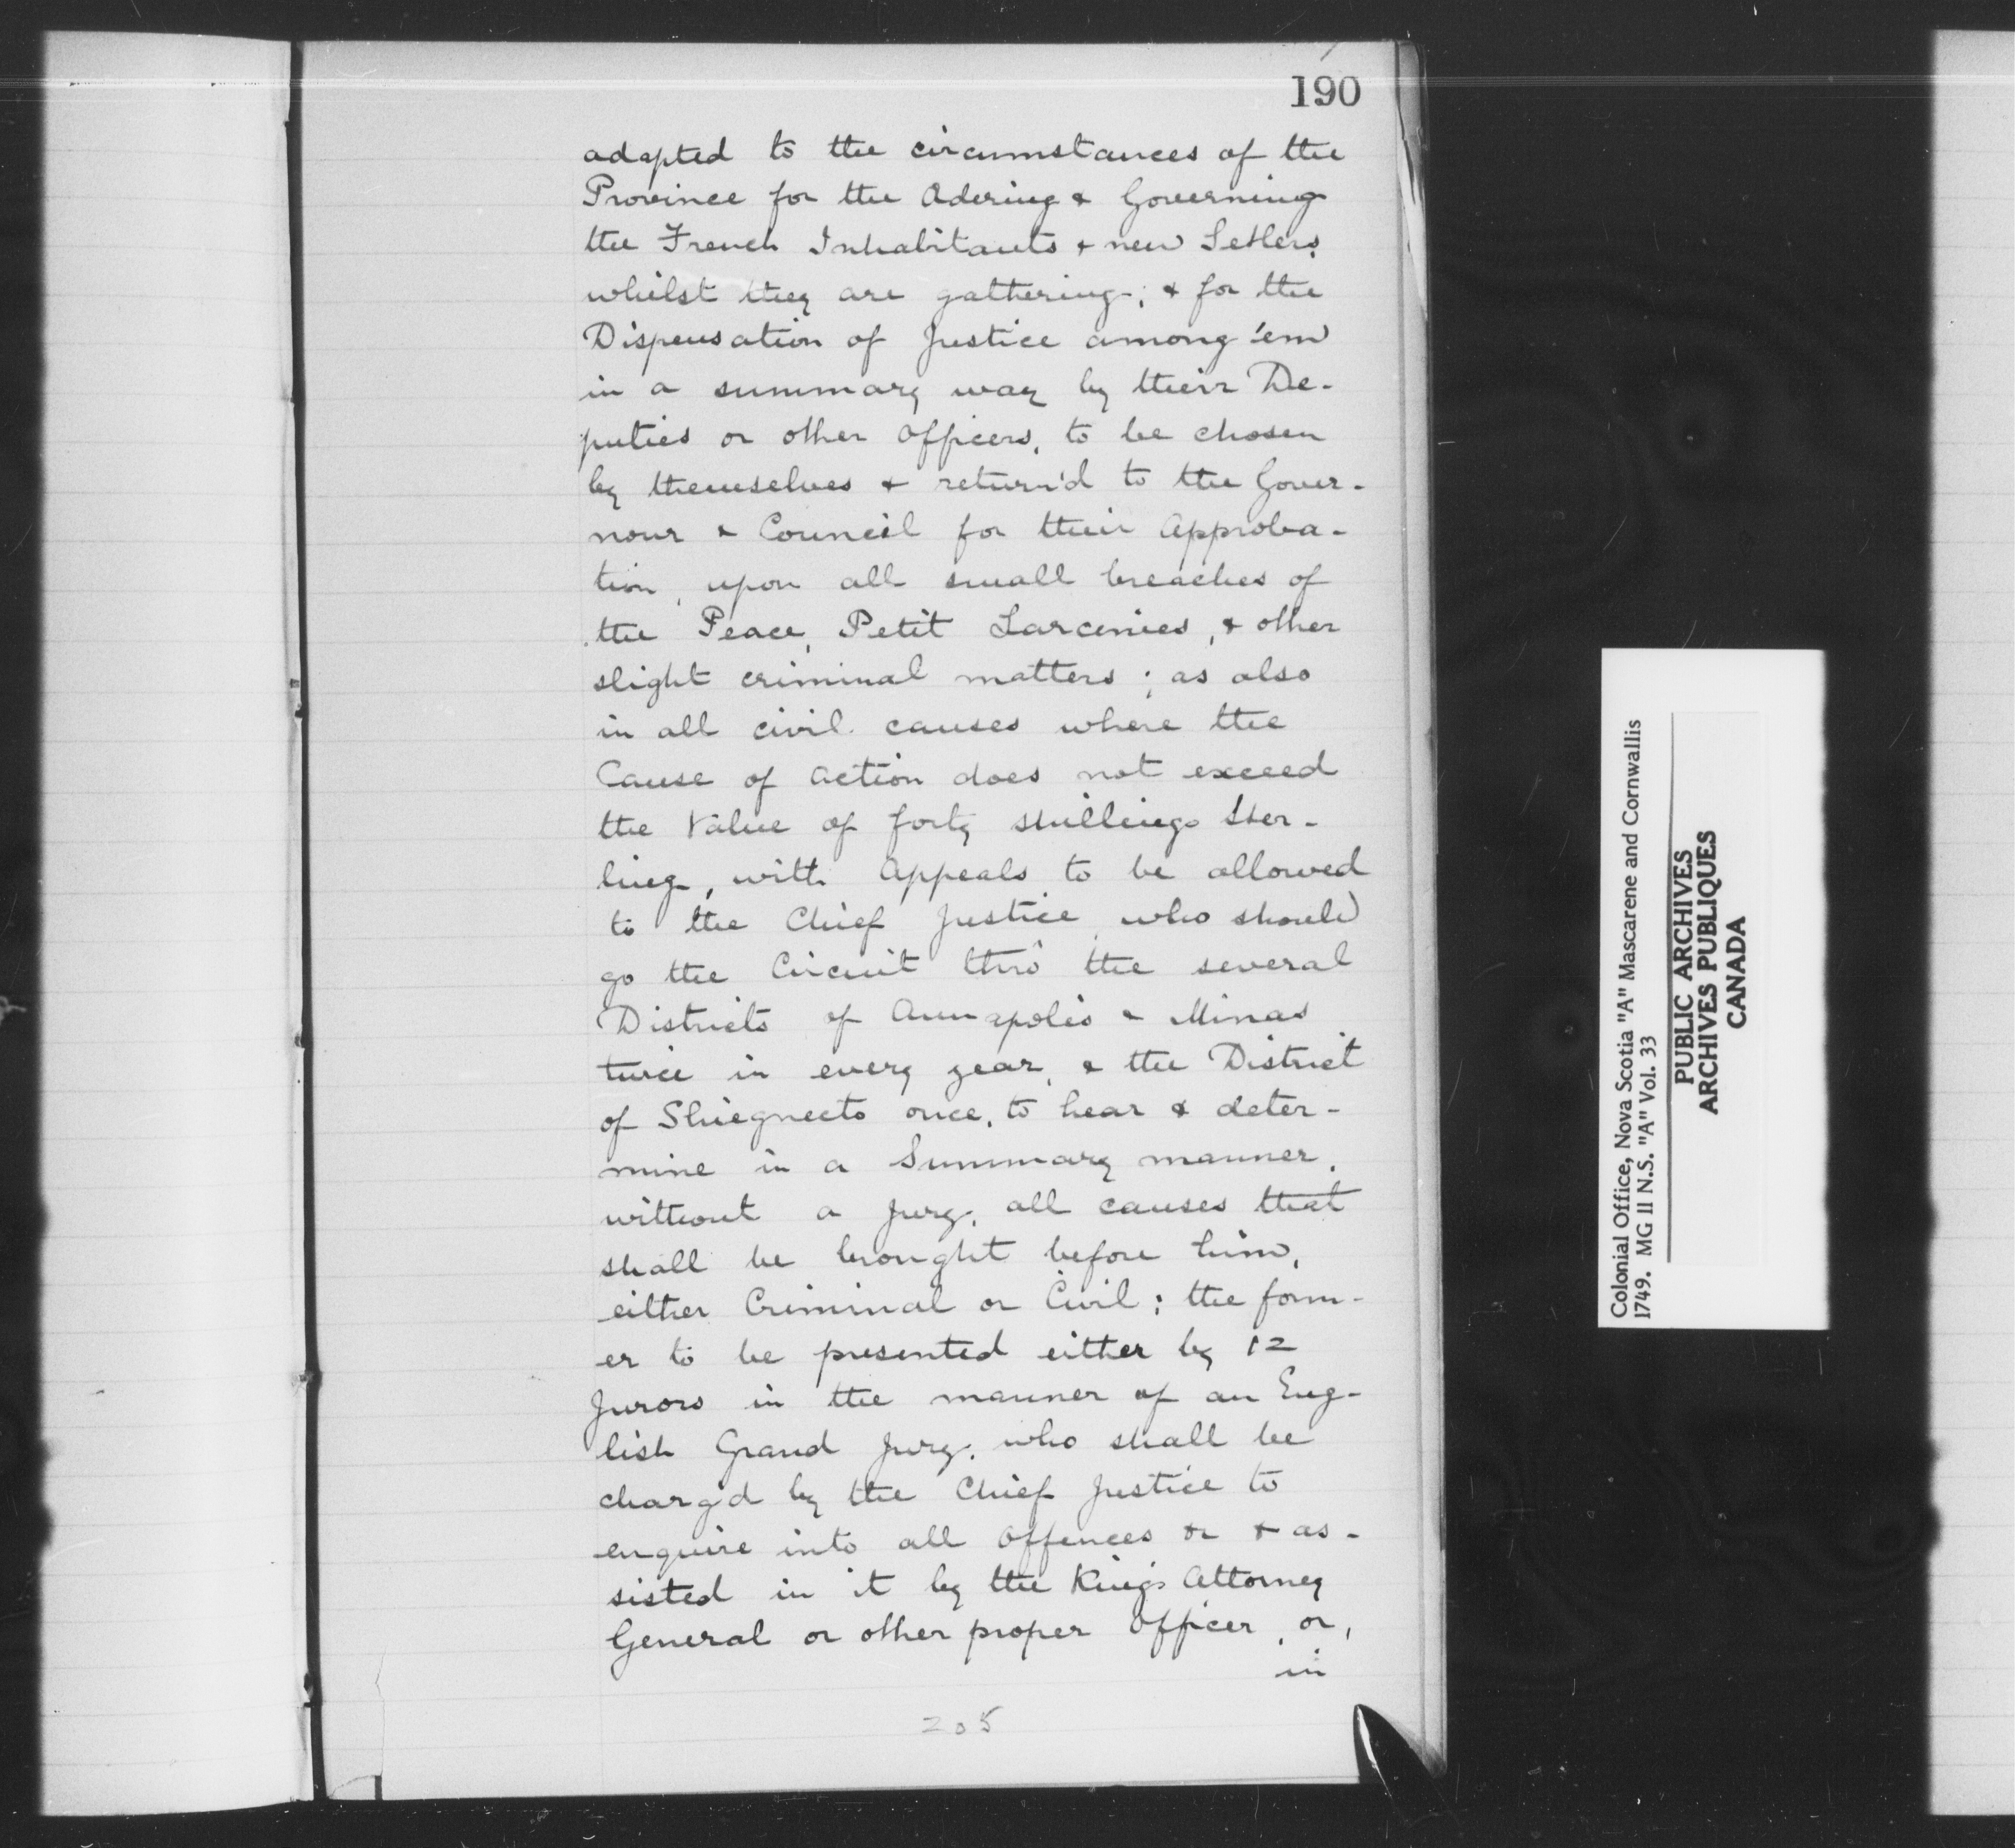 190
adapted to the circumstances of the
Province for the Odering & Governing
the French Inhabitants & new Setlers,
whilst they are gathering; & for the
Dispensation of Justice among 'em
in a summary way by their De-
puties or other Officers, to be chosen
by themselves & return'd to the Gover-
nour & Council for their Approba-
tion, upon all small breaches of
the Peace, Petit Larcenies, & other
slight criminal matters; as also
in all civil causes where the
Cause of Action does not exceed
the Value of forty shillings Ster-
ling, with Appeals to be allowed
to the Chief Justice, who should
go the Circuit thro' the several
Districts of Annapolis & Minas
twice in every year, & the District
of Shiegnecto once, to hear & deter-
mine in a Summary manner,
without a Jury, all causes that
shall be brought before him,
either Criminal or Civil; the form-
er to be presented either by 12
Jurors in the manner of an Eng-
lish Grand Jury, who shall be
charg'd by the Chief Justice to
enquire into all Offences & as-
sisted in it by the King's Attorney
General or other proper Officer, or,
in
205
Colonial Office, Nova Scotia "A" Mascarene and Cornwallis
1749. MG II N.S. "A" Vol. 33
PUBLIC ARCHIVES
ARCHIVES PUBLIQUES
CANADA